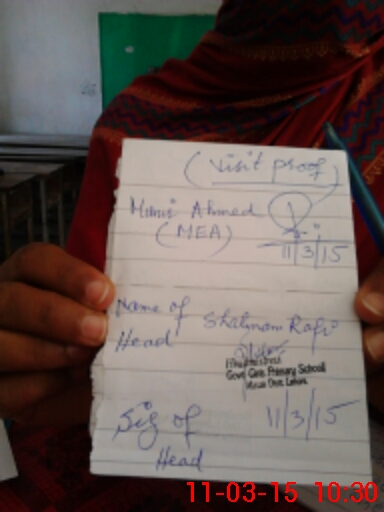 (Visit proof)
Ahmed
(MEA)
11/3/15
Name of
Head
Shabnam Rafi
Govt Girls Primary School
Sig of
Head
11/3/15
11-03-15 10:30